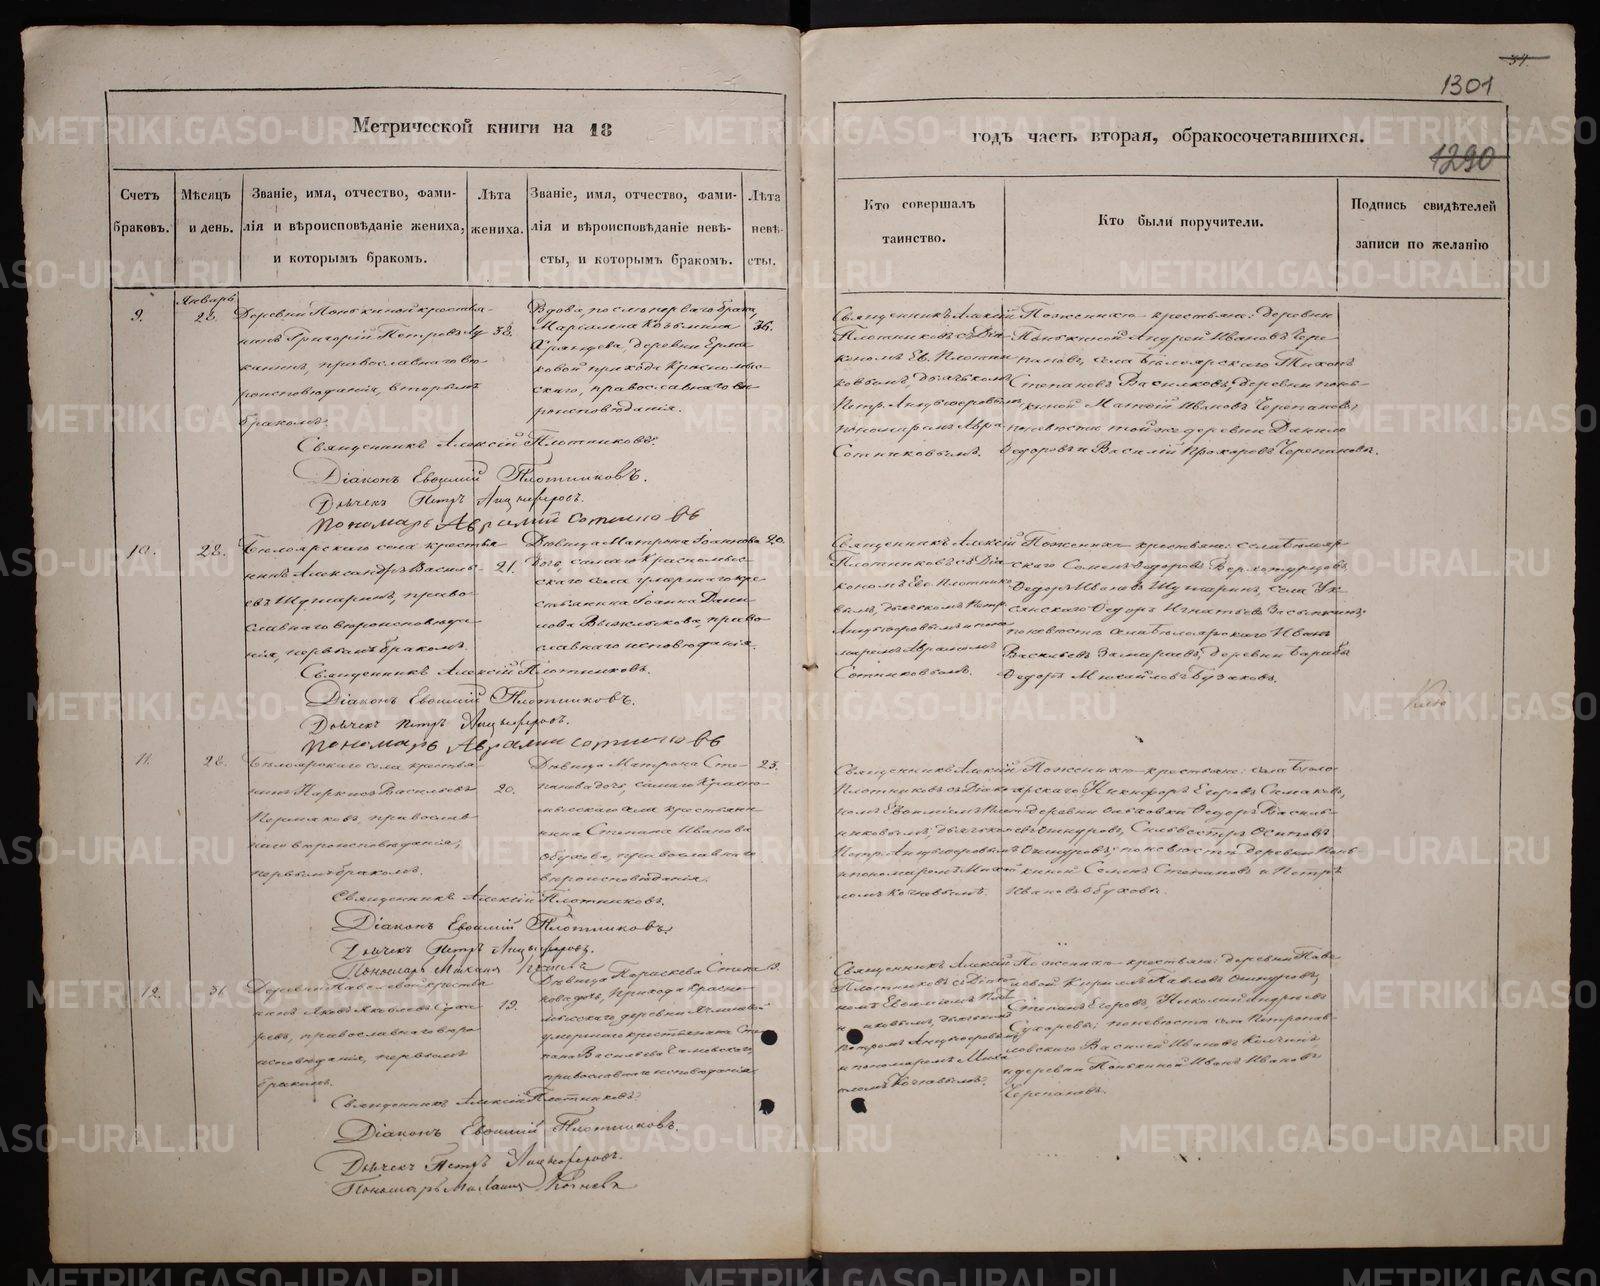 34.
1301
Метрической книги на 18
годъ часть вторая, обракосочетавшихся.
1290
Счетъ браковъ.
Мѣсяцъ и день.
Званіе, имя, отчество, фами-
лія и вѣроисповѣданіе жениха,
и которымъ бракомъ.
Лѣта жениха.
Званіе, имя, отчество, фами-
лія и вѣроисповѣданіе невѣ-
сты, и которымъ бракомъ.
Лѣта невѣ-
сты.
Кто совершалъ
таинство.
Кто были поручители.
Подпись свидѣтелей
записи по желанію
9.
Январь
28.
Деревни Понькиной крестья-
нинъ Григорій Петровъ
православнаго вѣ-
роисповѣданія, вторымъ
бракомъ.
38.
Вдова, послѣ перваго брака,
Маріамна Козьмина
деревни Ерма-
ковой прихода Красномыс-
скаго, православнаго вѣ-
роисповѣданія.
36.
Священникъ Алексій
Плотниковъ съ Діа-
кономъ Ев. Плотни-
ковымъ, дьячкомъ
Петр. Анцыферовымъ,
пономаремъ Авра.
Сотниковымъ.
По женихѣ крестьяне: деревни
Понькиной Андрей Ивановъ Чере-
пановъ, села Бѣлоярскаго Тихонъ
Степановъ Васильковъ, деревни Понь-
киной Матвѣй Ивановъ Черепановъ;
по невѣстѣ той же деревни Данило
Ѳедоровъ и Василій Прохоровъ Черепановы.
Священникъ Алексій Плотниковъ.
Діаконъ Евѳимій Плотниковъ.
Дьячекъ Петръ Анцыферовъ.
Пономарь Аврамій Сотниковъ
10.
28.
Бѣлоярскаго села крестья-
нинъ Александръ Василь-
евъ Шушаринъ, право-
славнаго вѣроисповѣда-
нія, первымъ бракомъ.
21.
Дѣвица Матрона Іоаннова
дочь, самаго Красномыс-
скаго села умершаго кре-
стьянина Іоанна Дани-
лова право-
славнаго исповѣданія.
20.
Священникъ Алексій
Плотниковъ съ Діа-
кономъ Евѳ. Плотнико-
вымъ, дьячкомъ Петр.
Анцыферовымъ и поно-
маремъ Аврамомъ
Сотниковымъ.
По женихѣ крестьяне: села Бѣлояр-
скаго Семенъ Ѳедоровъ Верхотурцовъ,
Ѳедоръ Ивановъ Шушаринъ, села Ук-
сянскаго Ѳедоръ Игнатьевъ Засыпкинъ;
по невѣстѣ села Бѣлоярскаго Иванъ
Васильевъ Замараевъ, деревни Бараба
Ѳедоръ Михайловъ Бузаковъ.
Священникъ Алексій Плотниковъ.
Діаконъ Евѳимій Плотниковъ.
Дьячекъ Петръ Анцыферовъ.
Пономарь Аврамій Сотниковъ
11.
28.
Бѣлоярскаго села крестья-
нинъ Наркисъ Васильевъ
Пермяковъ, православ-
наго вѣроисповѣданія,
первымъ бракомъ.
20.
Дѣвица Матрона Сте-
панова дочь, самаго Красно-
мысскаго села крестьяни-
нина Степана Иванова
Обухова, православнаго
вѣроисповѣданія.
23.
Священникъ Алексій
Плотниковъ съ Діако-
номъ Евѳиміемъ Плот-
никовымъ, дьячкомъ
Петр. Анцыферовымъ
и пономаремъ Михаи-
ломъ Кочневымъ.
По женихѣ крестьяне: села Бѣло-
ярскаго Никифоръ Егоровъ Симаковъ,
деревни Ѳедоръ Василь-
евъ Ошнуровъ, Сильвестръ Осиповъ
Ошнуровъ; по невѣстѣ деревни Понь-
киной Семенъ Степановъ и Петръ
Ивановъ Обуховы.
Священникъ Алексій Плотниковъ.
Діаконъ Евѳимій Плотниковъ.
Дьячекъ Петръ Анцыферовъ.
Пономарь Михаилъ Кочневъ
12.
31.
Деревни Павелевой крестья-
нинъ Яковъ Яковлевъ Суха-
ревъ, православнаго вѣро-
исповѣданія, первымъ
бракомъ.
19.
Дѣвица Параскева Степа-
нова дочь, прихода Красно-
мысскаго деревни
умершаго крестьянина Сте-
пана Васильева
православнаго исповѣданія
19.
Священникъ Алексій
Плотниковъ съ Діако-
номъ Евѳиміемъ Плот-
никовымъ, дьячкомъ
Петромъ Анцыферовымъ
и пономаремъ Миха-
иломъ Кочневымъ.
По женихѣ крестьяне: деревни Паве-
левой Кирилъ Павловъ Ошнуровъ,
Степанъ Егоровъ, Николай Андреевъ
Сухаревы; по невѣстѣ села Петропав-
ловскаго Василій Ивановъ
и деревни Понькиной Иванъ Ивановъ
Черепановъ.
Священникъ Алексій Плотниковъ.
Діаконъ Евѳимій Плотниковъ.
Дьячекъ Петръ Анцыферовъ.
Пономарь Михаилъ Кочневъ
METRIKI.GASO-URAL.RU